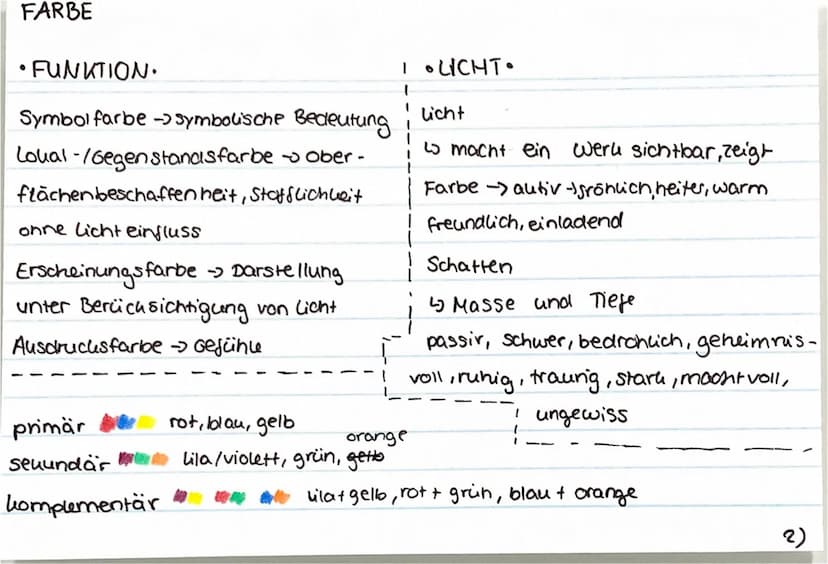 FARBE
•FUNKTION•
Symbolfarbe → symbolische Bedeutung
Lokal-/Gegenstandsfarbe → Ober-
flächenbeschaffenheit, Stofflichkeit
ohne Lichteinfluss
Erscheinungsfarbe → Darstellung
unter Berücksichtigung von Licht
Ausdrucksfarbe → Gefühle
•LICHT•
Licht
↳ macht ein Werk sichtbar, zeigt
Farbe → aktiv → fröhlich, heiter, warm
freundlich, einladend
Schatten
↳ Masse und Tiefe
passiv, schwer, bedrohlich, geheimnis-
voll, ruhig, traurig, stark, machtvoll,
ungewiss
primär rot, blau, gelb
sekundär lila/violett, grün, gelb orange
komplementär lila + gelb, rot + grün, blau + orange
2)